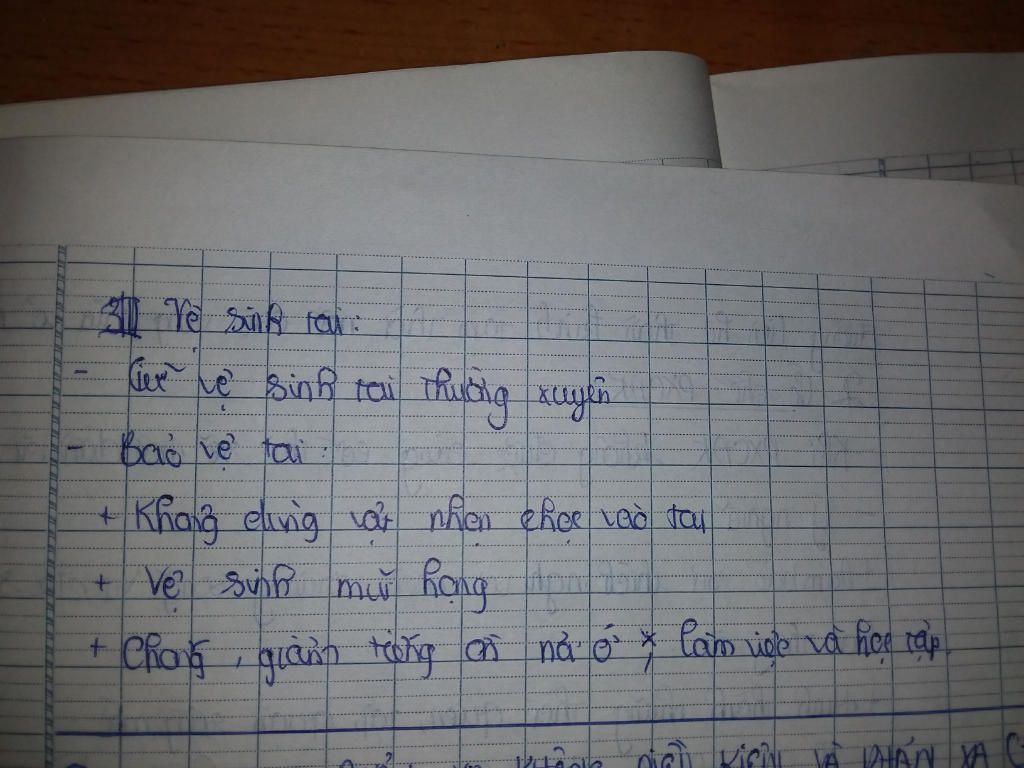 III Vệ sinh tai:
- Giữ vệ sinh tai thường xuyên
- Bảo vệ tai:
+ Không dùng vật nhọn chọc vào tai
+ Vệ sinh mũi họng
+ Chống, giảm tiếng ồn nơi ở, làm việc và học tập.
KIỆN VÀ PHẢN XẠ